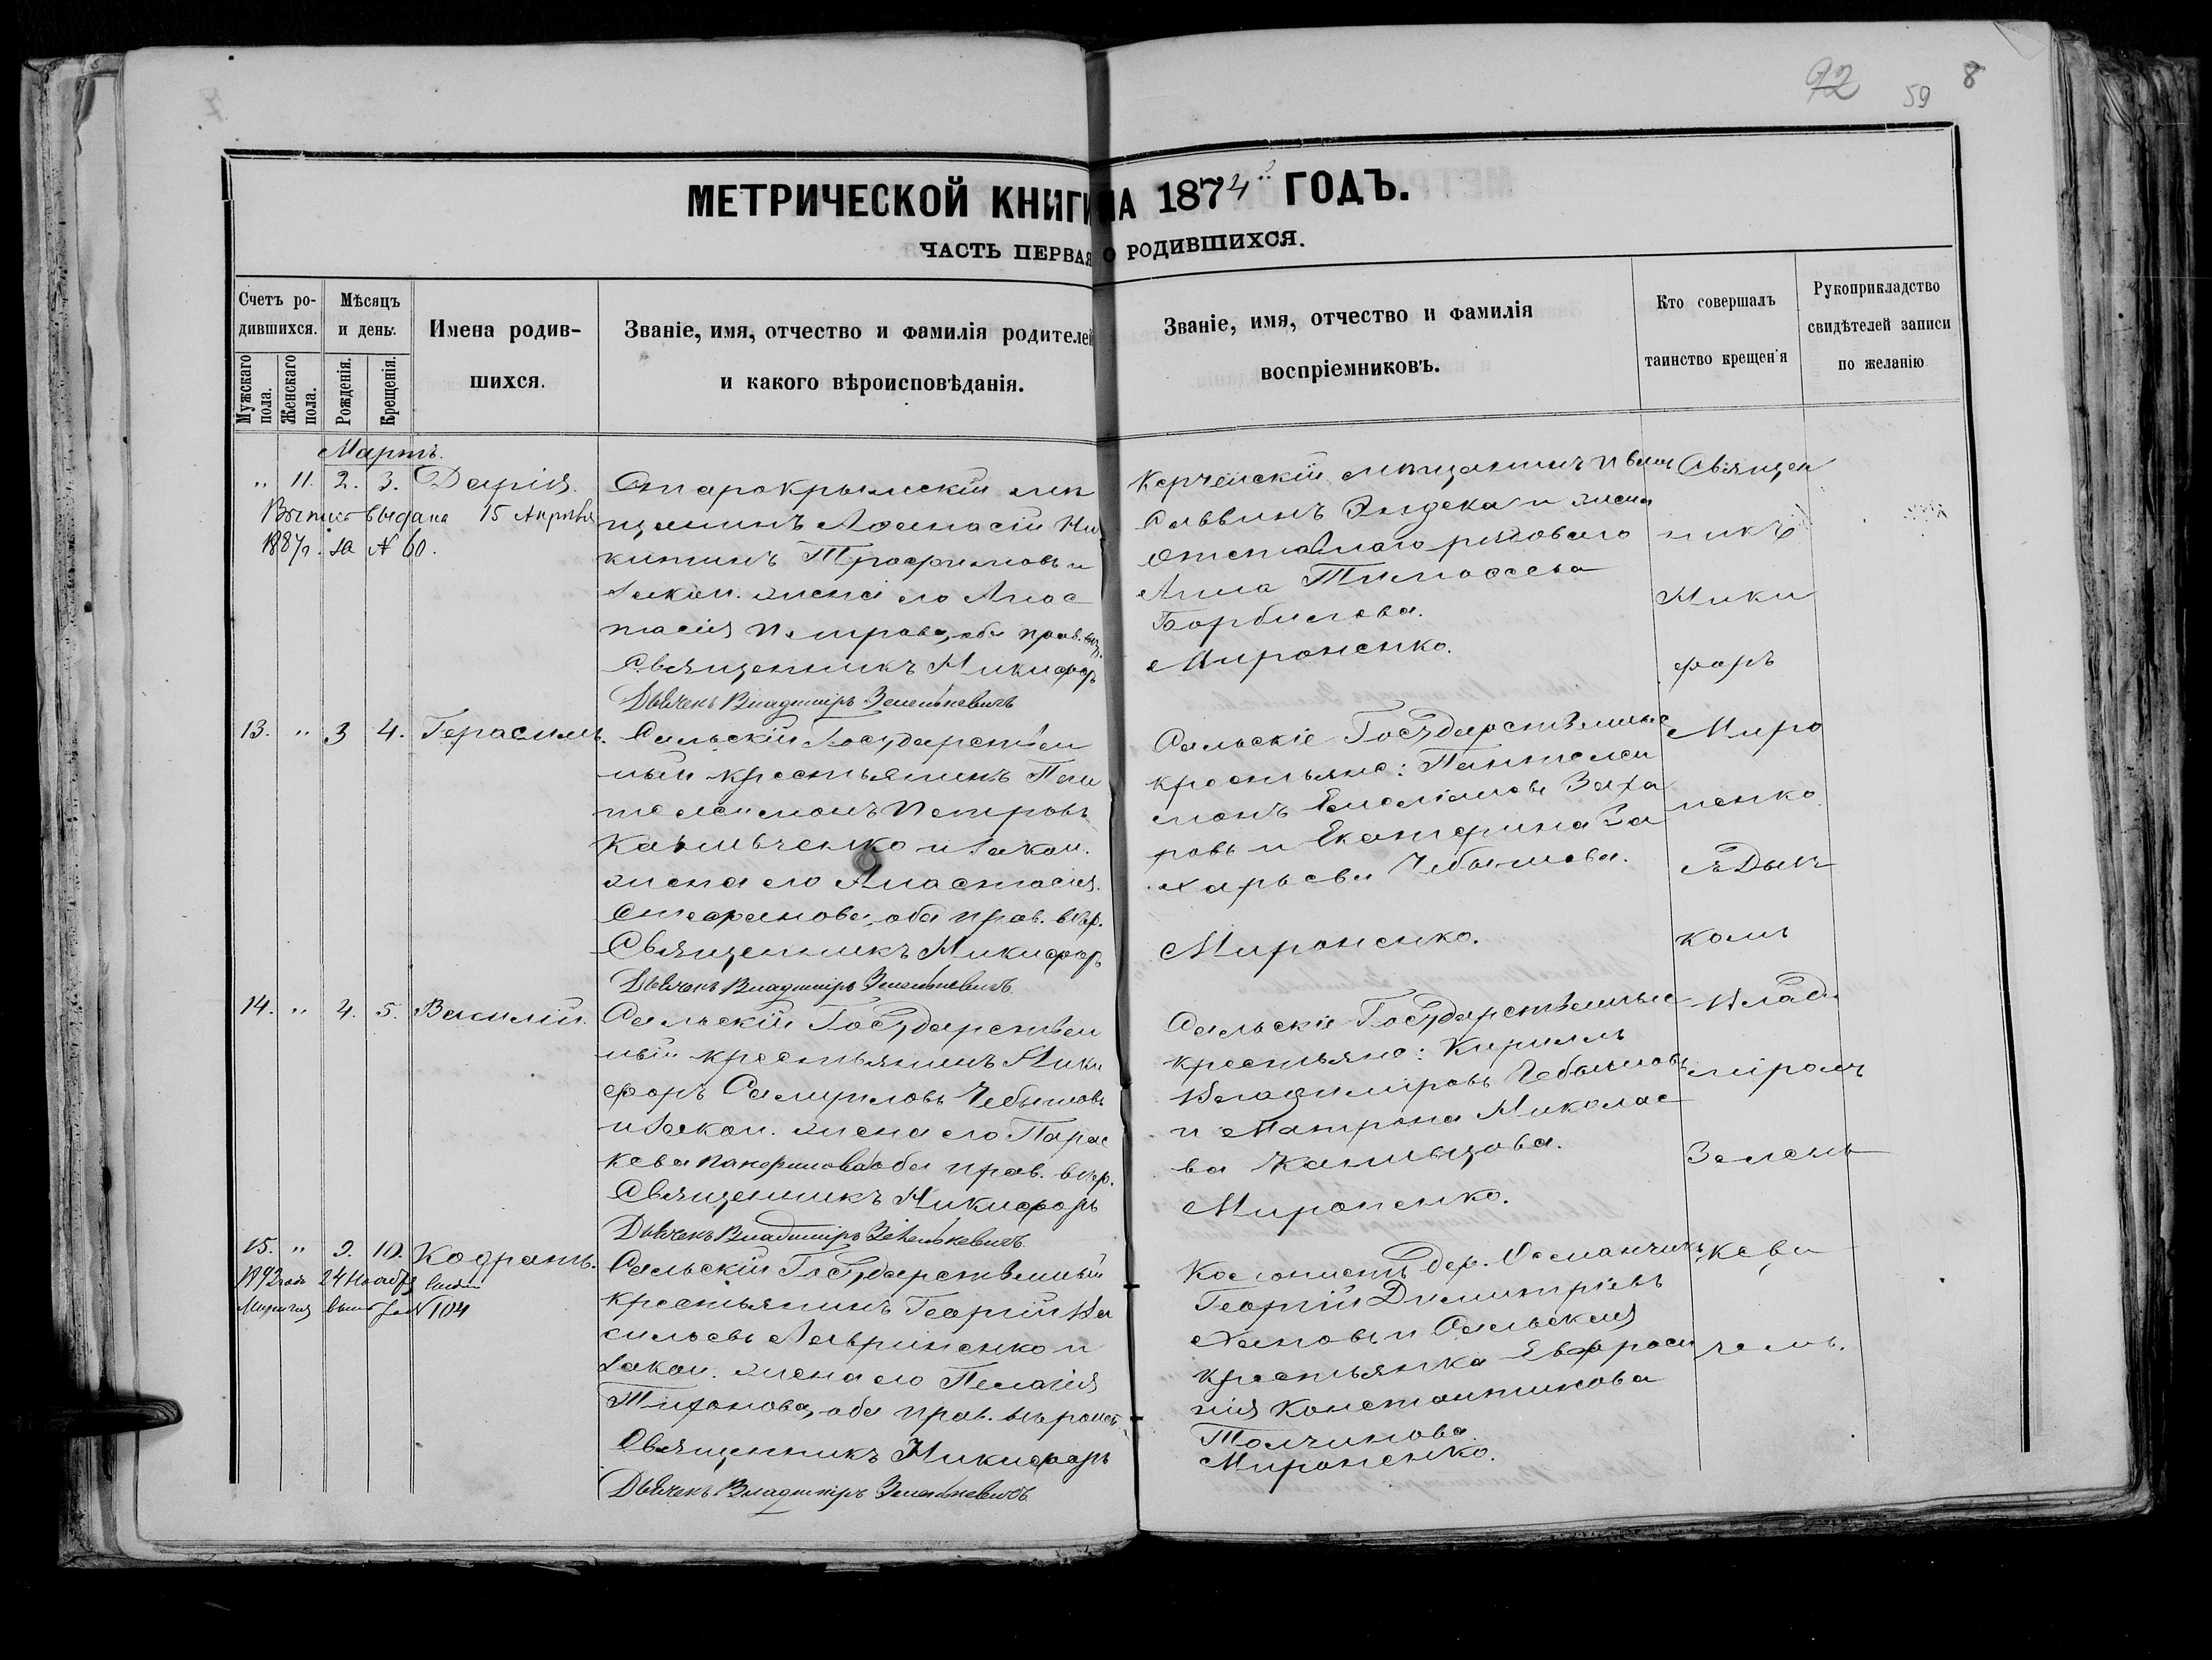 72 59 8
МЕТРИЧЕСКОЙ КНИГИ НА 1874й ГОДЪ.
ЧАСТЬ ПЕРВАЯ О РОДИВШИХСЯ.
Счетъ ро-
дившихся.
Мужскаго пола.
Женскаго пола.
Мѣсяцъ
и день.
Рожденія.
Крещенія.
Имена родив-
шихся.
Званіе, имя, отчество и фамилія родителей
и какого вѣроисповѣданія.
Званіе, имя, отчество и фамилія
воспріемниковъ.
Кто совершалъ
таинство крещенія
Рукоприкладство
свидѣтелей записи
по желанію
Мартъ.
" 11. 2. 3. Дарія.
выдана 15 Апрѣля
1887г. за N 60.
Старокрымскій мѣ
щанинъ Аѳанасій Ни
китинъ Трофимовъ и
закон. жена его Анас
тасія Петрова, оба прав. вѣр.
Священникъ Никифоръ
Дьячекъ Владиміръ Зеленькевичъ
Керченскій мѣщанинъ Иванъ
Саввинъ и жена
отставнаго рядового
Анна Тимоѳеева
Мироненко.
13. " 3 4. Герасимъ.
Сальскій Государствен
ный крестьянинъ Пан
телеимонъ Петровъ
и закон.
жена его Анастасія
Стефанова, оба прав. вѣр.
Священникъ Никифоръ
Дьячекъ Владиміръ Зеленькевичъ
Сальскіе Государственные
крестьяне: Пантелеи
монъ Емеліановъ Заха
ровъ и Екатерина За
харьева Чебышева.
Мироненко.
14. " 4. 5. Василій.
Сальскій Государствен
ный крестьянинъ Ники
форъ Самуиловъ Чебышовъ
и закон. жена его Парас
кева оба прав. вѣр.
Священникъ Никифоръ
Дьячекъ Владиміръ Зеленькевичъ
Сальскіе Государственные
крестьяне: Кириллъ
Владиміровъ Чебышовъ
и Матрона Николае
ва
Мироненко.
15. " 9. 10. Кодратъ.
1892 года 24 Ноября
N 104
Сальскій Государственный
крестьянинъ Георгій Ва
сильевъ Лавриненко и
закон. жена его Пелагія
Тифонова, оба прав. вѣроисп.
Священникъ Никифоръ
Дьячекъ Владиміръ Зеленькевичъ
Колонистъ дер. Османчикъ
Георгій Димитріевъ
и Сальская
крестьянка Евфроси
нія Константинова
Толчинова
Мироненко.
Священ
никъ
Ники
форъ
Миро
ненко
съ Дьяч
комъ
Влади
міромъ
Зелень
кеви
чемъ.